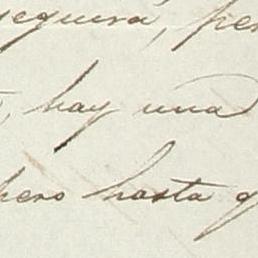 seguirá, per
, hay una
pero hasta q